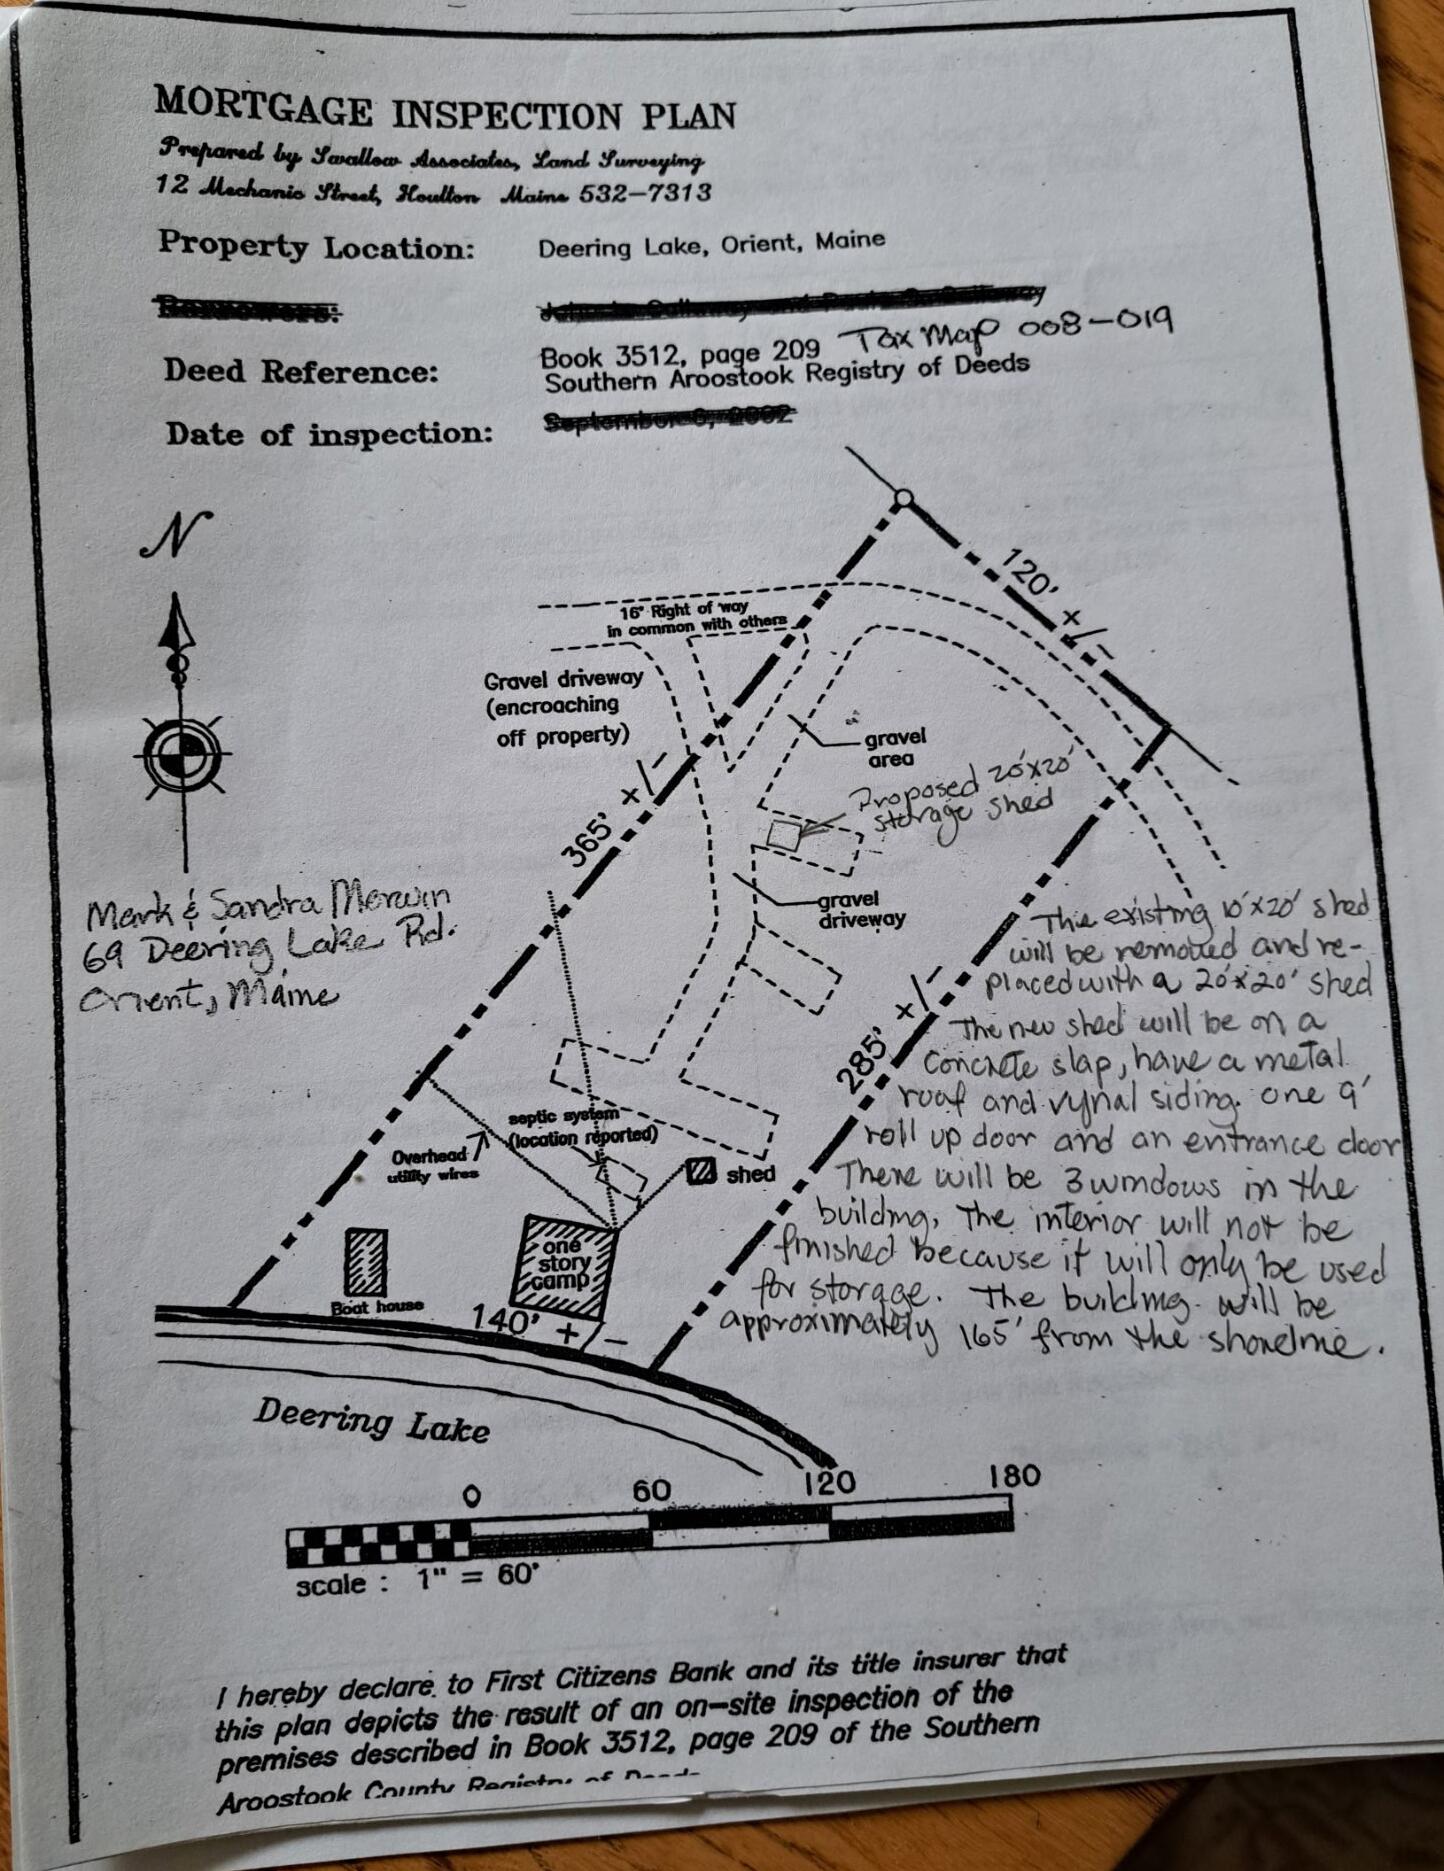 MORTGAGE INSPECTION PLAN
Prepared by Swallow Associates, Land Surveying
12 Mechanic Street, Houlton Maine 532-7313
Property Location: Deering Lake, Orient, Maine
Borrowers:
Deed Reference: Book 3512, page 209 Tax Map 008-019
Southern Aroostook Registry of Deeds
Date of inspection: September 6, 2002
N
120' +/-
16' Right of way
in common with others
Gravel driveway
(encroaching
off property)
gravel
area
Proposed 20'x20'
storage shed
365' +/-
gravel
driveway
Mark & Sandra Merwin
69 Deering Lake Rd.
Orient, Maine
The existing 10'x20' shed
will be removed and re-
placed with a 20'x20' shed
The new shed will be on a
concrete slap, have a metal
roof and vynal siding. one 9'
roll up door and an entrance door
There will be 3 windows in the
building. The interior will not be
finished because it will only be used
for storage. The building will be
approximately 165' from the shoreline.
285' +/-
septic system
(location reported)
Overhead
utility wires
shed
one
story
camp
Boat house
140' +/-
Deering Lake
0 60 120 180
scale : 1" = 60'
I hereby declare to First Citizens Bank and its title insurer that
this plan depicts the result of an on-site inspection of the
premises described in Book 3512, page 209 of the Southern
Aroostook County Registry of Deeds